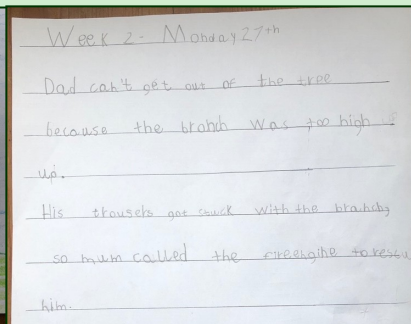 Week 2 - Monday 27th
Dad can't get out of the tree
because the branch was too high
up.
His trousers got stuck with the branch,
so mum called the fireengine to rescu
him.